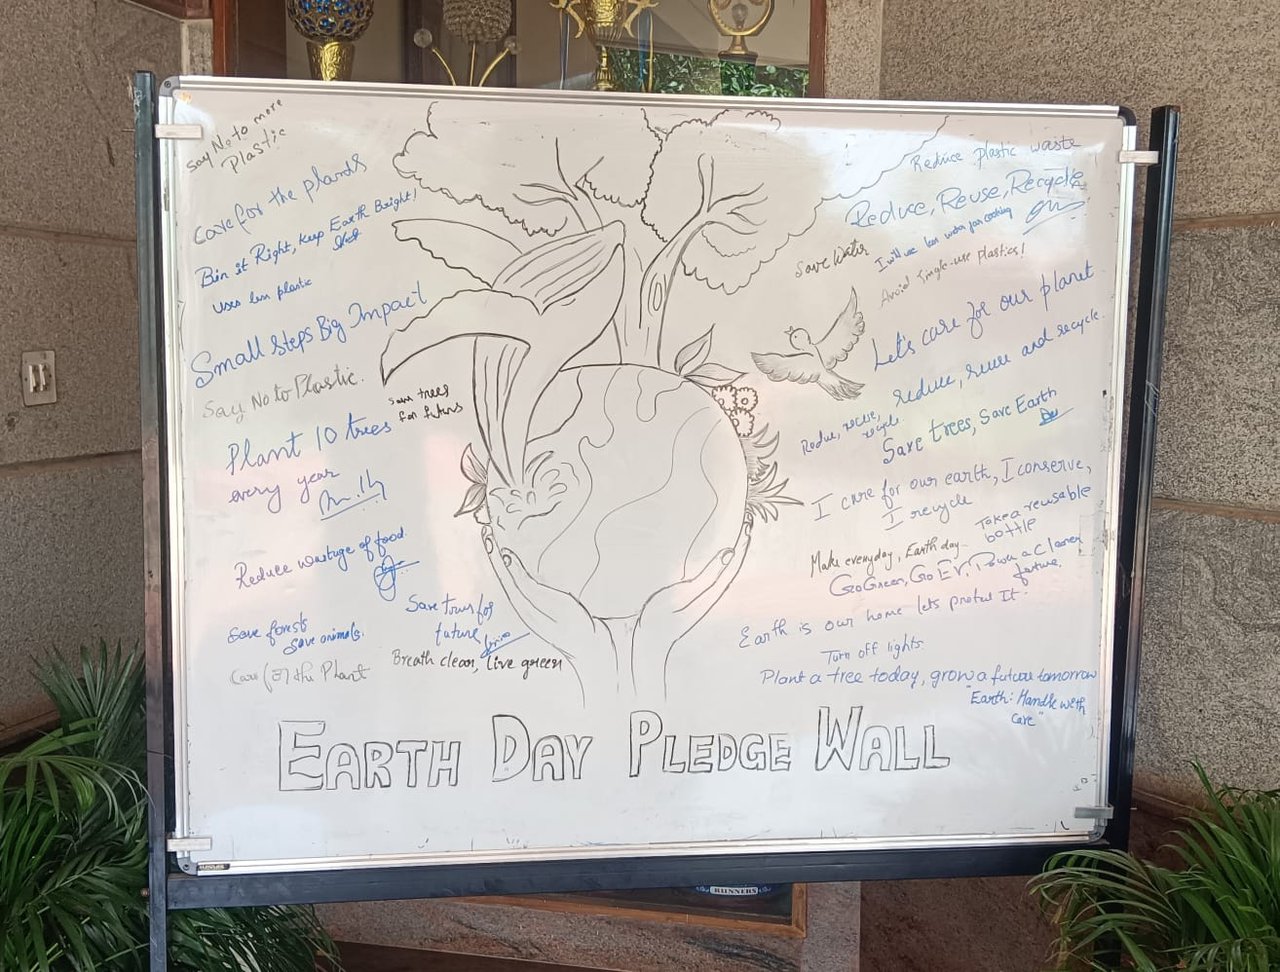 Say No to more
Plastic
Care for the plands
Bin it Right, Keep Earth Bright!
Uses less plastic
Small Steps Big Impact
Say No to Plastic.
Save trees
for future
Plant 10 trees
every year
Reduce wastage of food
Save trees for
future
Save forests
Save animals.
Breath clean, live green
Care for the Plant
Reduce plastic waste
Reduce, Reuse, Recycle
I will use less water for cooking
Save Water
Avoid Single-use plastics!
Let's care for our planet
reduce, reuse and recycle.
Reduce, reuse,
recycle
Save trees, Save Earth
I care for our earth, I conserve,
I recycle
Take a reusable
bottle
Make everyday, Earth day
Go Green, Go EV, Power a Cleaner
future.
Earth is our home lets protect It.
Turn off lights.
Plant a tree today, grow a future tomorrow
"Earth: Handle with
Care"
EARTH DAY PLEDGE WALL
RUNNERS